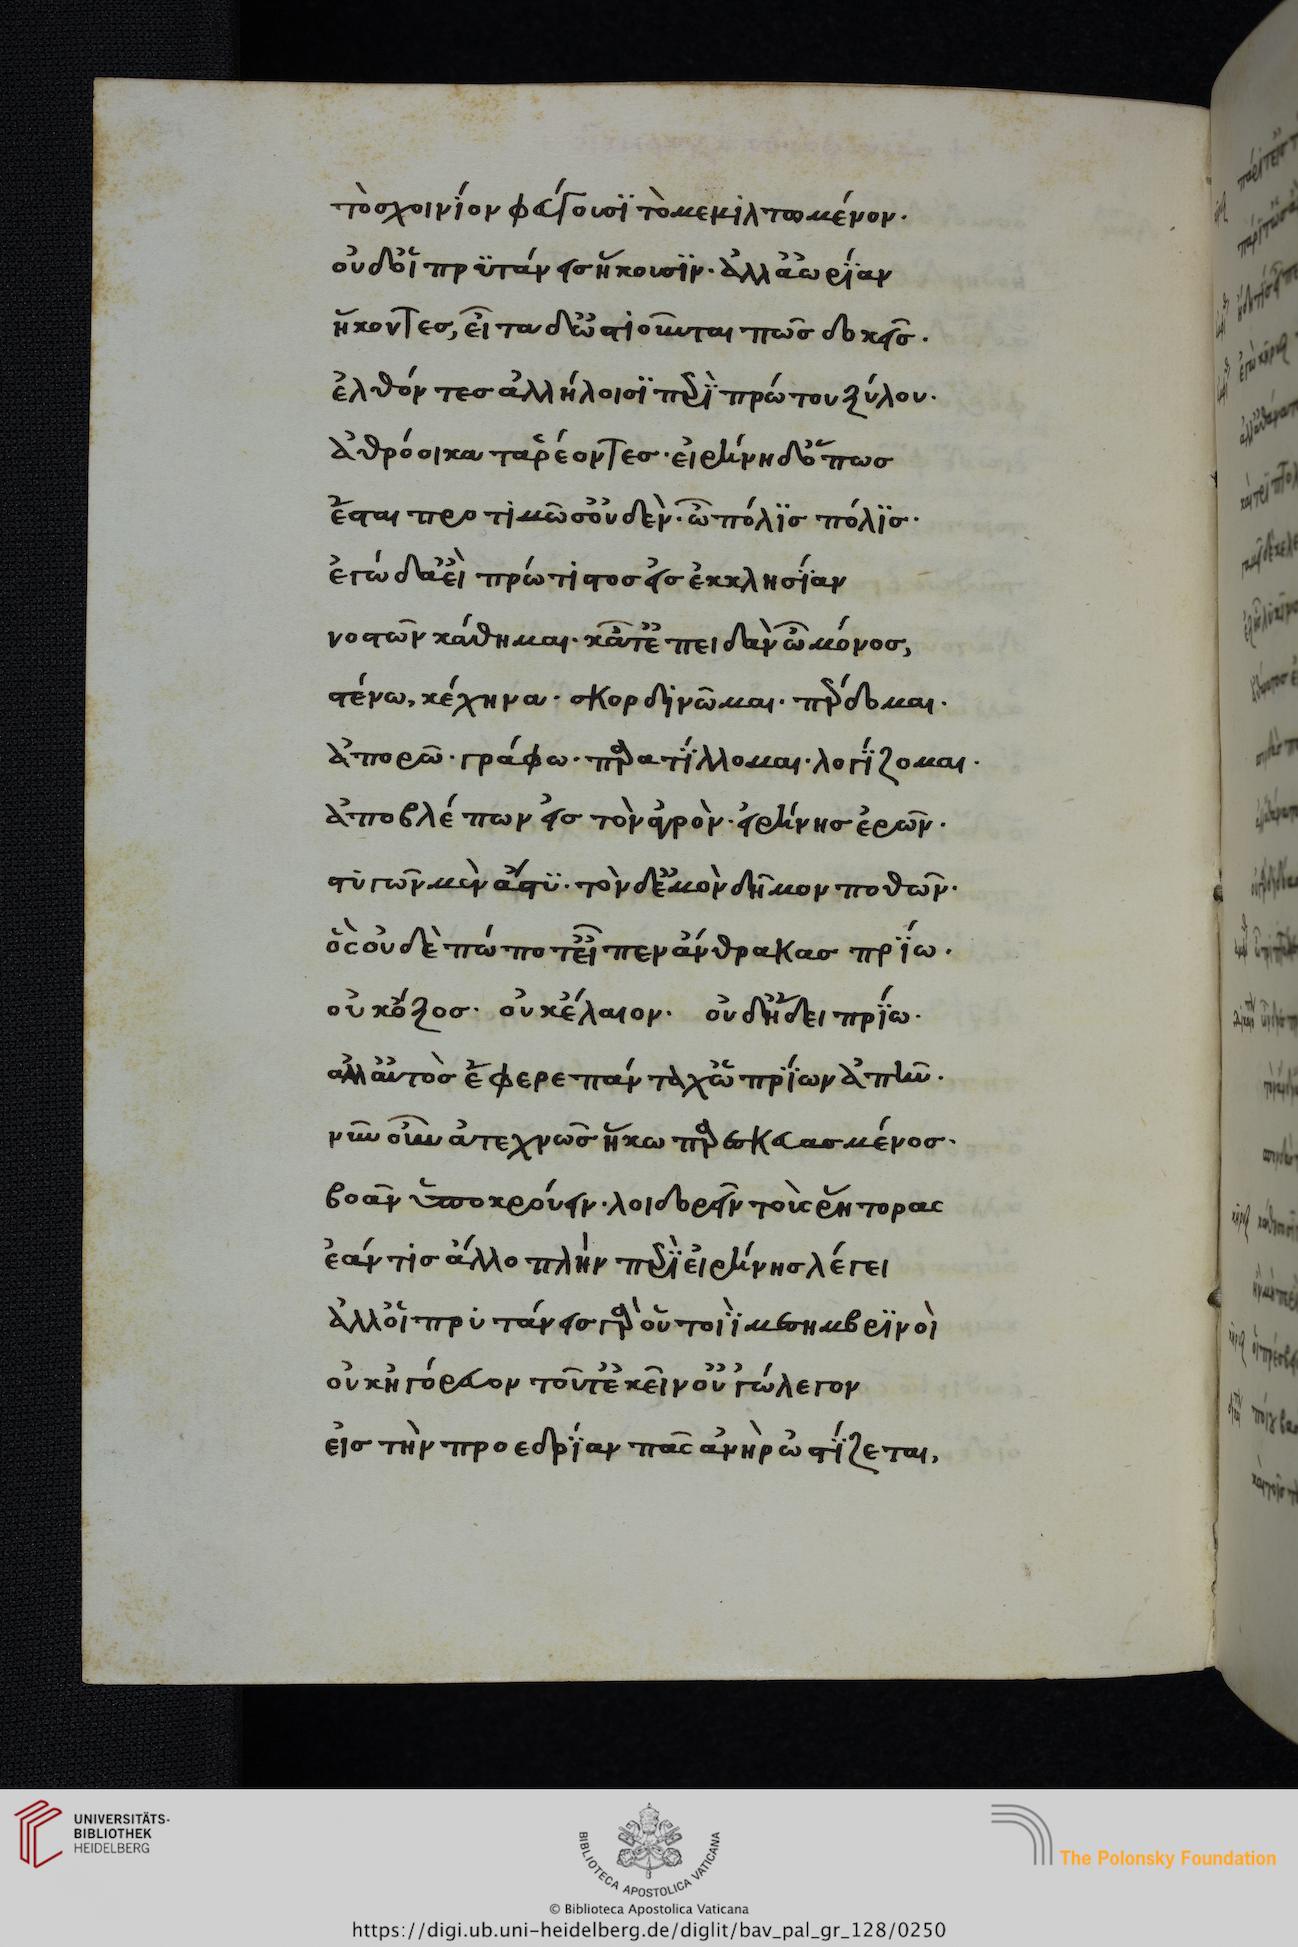 τὸ σχοινίον φεύγουσϊ τὸ μεμιλτωμένον·
οὐδ' οἵ πρϋτάνεισ ἥκουσϊν· ἀλλ' ἀωρΐαν
ἥκοντεσ, εἶτα δ' ὠστιοῦνται πῶσ δοκεῖσ·
ἐλθόντεσ ἀλλήλοισϊ περῒ πρώτου ξύλου·
ἀθρόοι καταρρέοντεσ· εἰρήνη δ' ὅπωσ
ἔσται προτιμῶσ' οὐδὲν· ὦ πόλϊσ πόλϊσ·
ἐγώ δ' ἀεὶ πρώτιστοσ εἰσ ἐκκλησΐαν
νοστῶν κάθημαι· κᾆτ' ἐπειδὰν ὦ μόνοσ,
στένω, κέχηνα· σκορδινῶμαι· πέρδομαι·
ἀπορῶ· γράφω· παρατΐλλομαι· λογΐζομαι·
ἀποβλέπων εἰσ τὸν ἀγρὸν· εἰρήνησ ἐρῶν·
στυγῶν μὲν ἄστϋ· τὸν δ' ἐμὸν δῆμον ποθῶν·
ὃσ οὐδὲ πώποτ' εἶπεν ἄνθρακασ πρΐω·
οὐκ ὄξοσ· οὐκ ἔλαιον· οὐδ' ἤδει πρΐω·
ἀλλ' αὐτὸσ ἔφερε πάντα χὠ πρΐων ἀπῆν·
νῦν οὖν ἀτεχνῶσ ἥκω παρεσκευασμένοσ·
βοᾶν ὑποκρούειν· λοιδορεῖν τοὺσ ῥήτορασ
ἐάν τισ ἄλλο πλὴν περῒ εἰρήνησ λέγει
ἀλλ' οἵ πρυτάνεισ γὰρ οὑτοιῒ μεσημβρϊνοὶ
οὐκ ἠγόρευον τοῦτ' ἐκεῖν' οὗ 'γώ λεγον
εἰσ τὴν προεδρΐαν πᾶσ ἀνὴρ ὠστΐζεται,
UNIVERSITÄTS-
BIBLIOTHEK
HEIDELBERG
BIBLIOTECA APOSTOLICA VATICANA
The Polonsky Foundation
© Biblioteca Apostolica Vaticana
https://digi.ub.uni-heidelberg.de/diglit/bav_pal_gr_128/0250